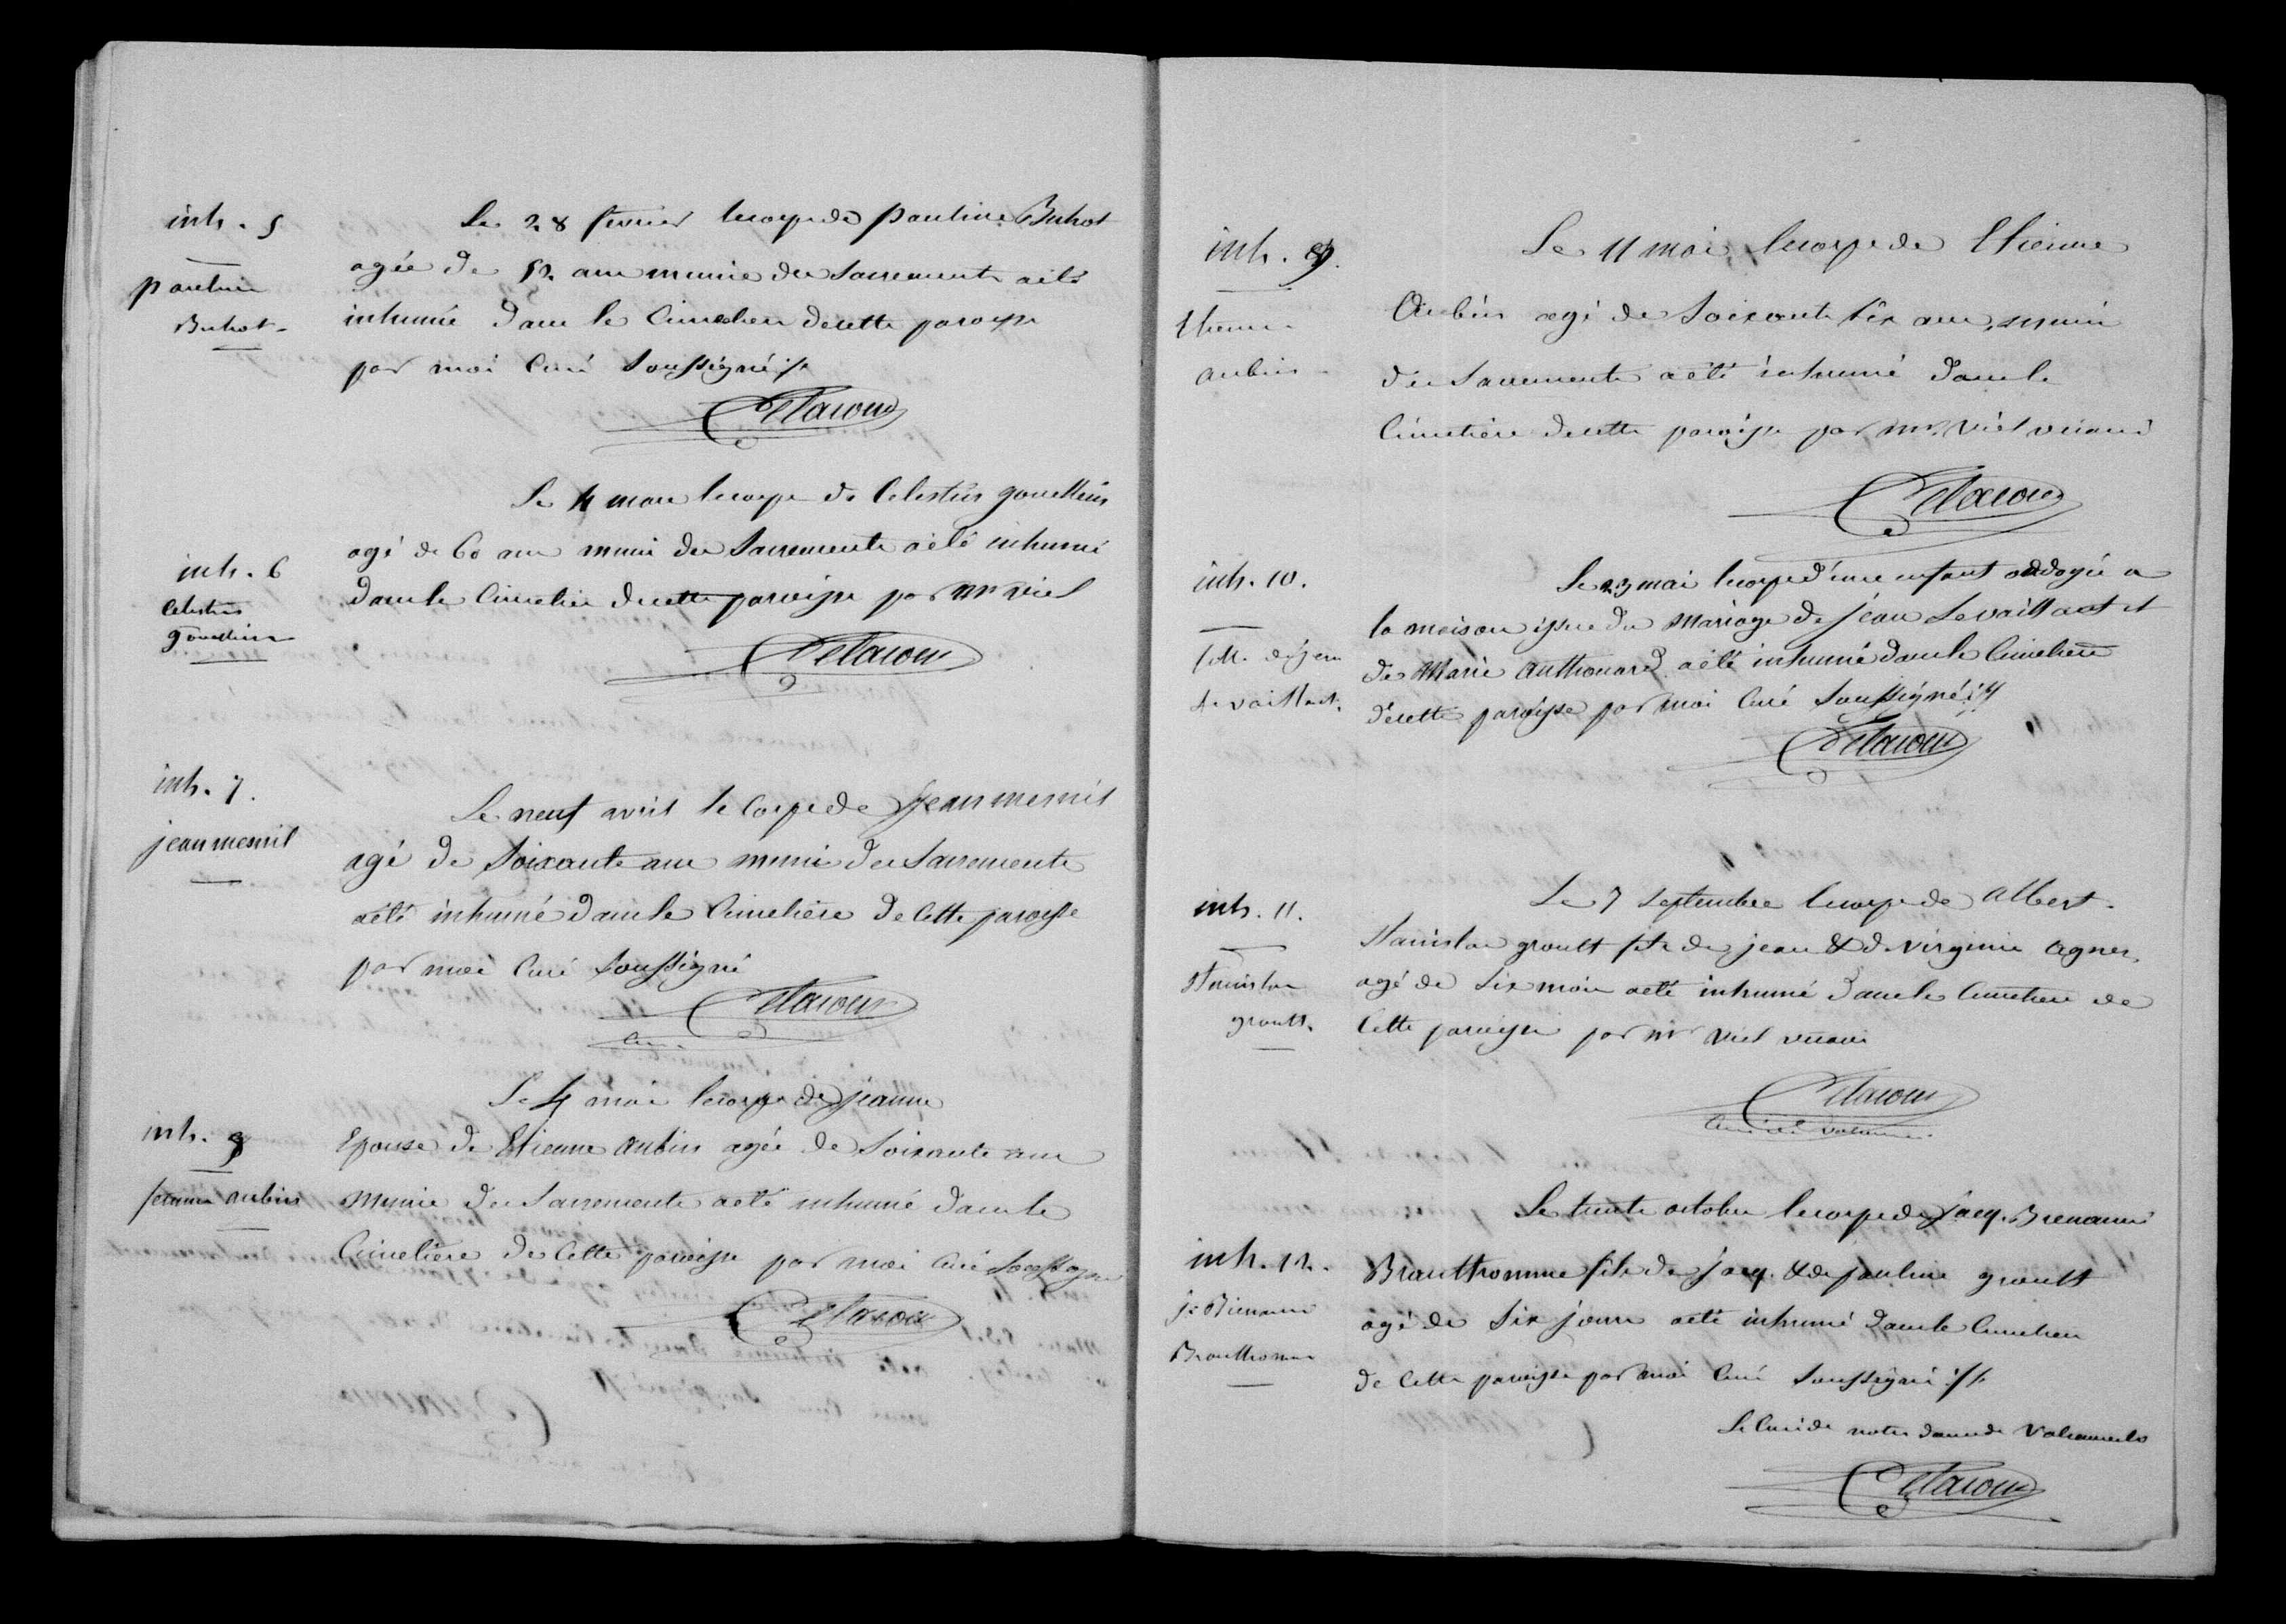 inh. 5
pauline
Buhot
Le 28 fevrier le corps de pauline Buhot
agée de 52 ans munie des Sacrements a été
inhumée dans le Cimetiere de cette paroisse
par moi Curé Soussigné
Delacour
inh. 6
Celestin
gouellin
Le 4 mars le corps de Celestin gouellin
agé de 60 ans muni des Sacrements a été inhumé
dans le Cimetiere de cette paroisse par Mr viel
Delacour
inh. 7.
jean mesnil
Le neuf avril le Corps de jean mesnil
agé de Soixante ans muni des Sacrements
a été inhumé dans le Cimetière de Cette paroisse
par moi Curé Soussigné
Delacour
Curé
inh. 8
jeanne aubin
Le 4 mai le corps de jeanne
Epouse de Etienne aubin agée de Soixante ans
Munie des Sacrements a été inhumé dans le
Cimetière de Cette paroisse par moi Curé Soussigné
Delacour
inh. 9.
Etienne
aubin
Le 11 mai, le corps de Etienne
Aubin agé de Soixante six ans, muni
des Sacrements a été inhumé dans le
Cimetière de cette paroisse par mr. Viel vicaire
Delacour
inh. 10.
fille de jean
Levaillant.
Le 23 mai le corps d'une enfant ondoyée a
la maison issue du Mariage de jean Levaillant et
de Marie Authouard a été inhumé dans le Cimetiere
de cette paroisse par moi Curé Soussigné
Delacour
inh. 11.
Stanislas
groult.
Le 7 Septembre le corps de Albert.
Stanislas groult fils de jean & de virginie agnes,
agé de six mois a été inhumé dans le Cimetiere de
Cette paroisse par mr Viel vicaire
Delacour
inh. 12.
jq Bienaimé
Brauthomme
Le trente octobre le corps de jacq. Bienaimé
Brauthomme fils de jacq. & de pauline groult
agé de Six jours a été inhumé dans le Cimetiere
de Cette paroisse par moi Curé Soussigné
Le Curé de notre dame de
Delacour